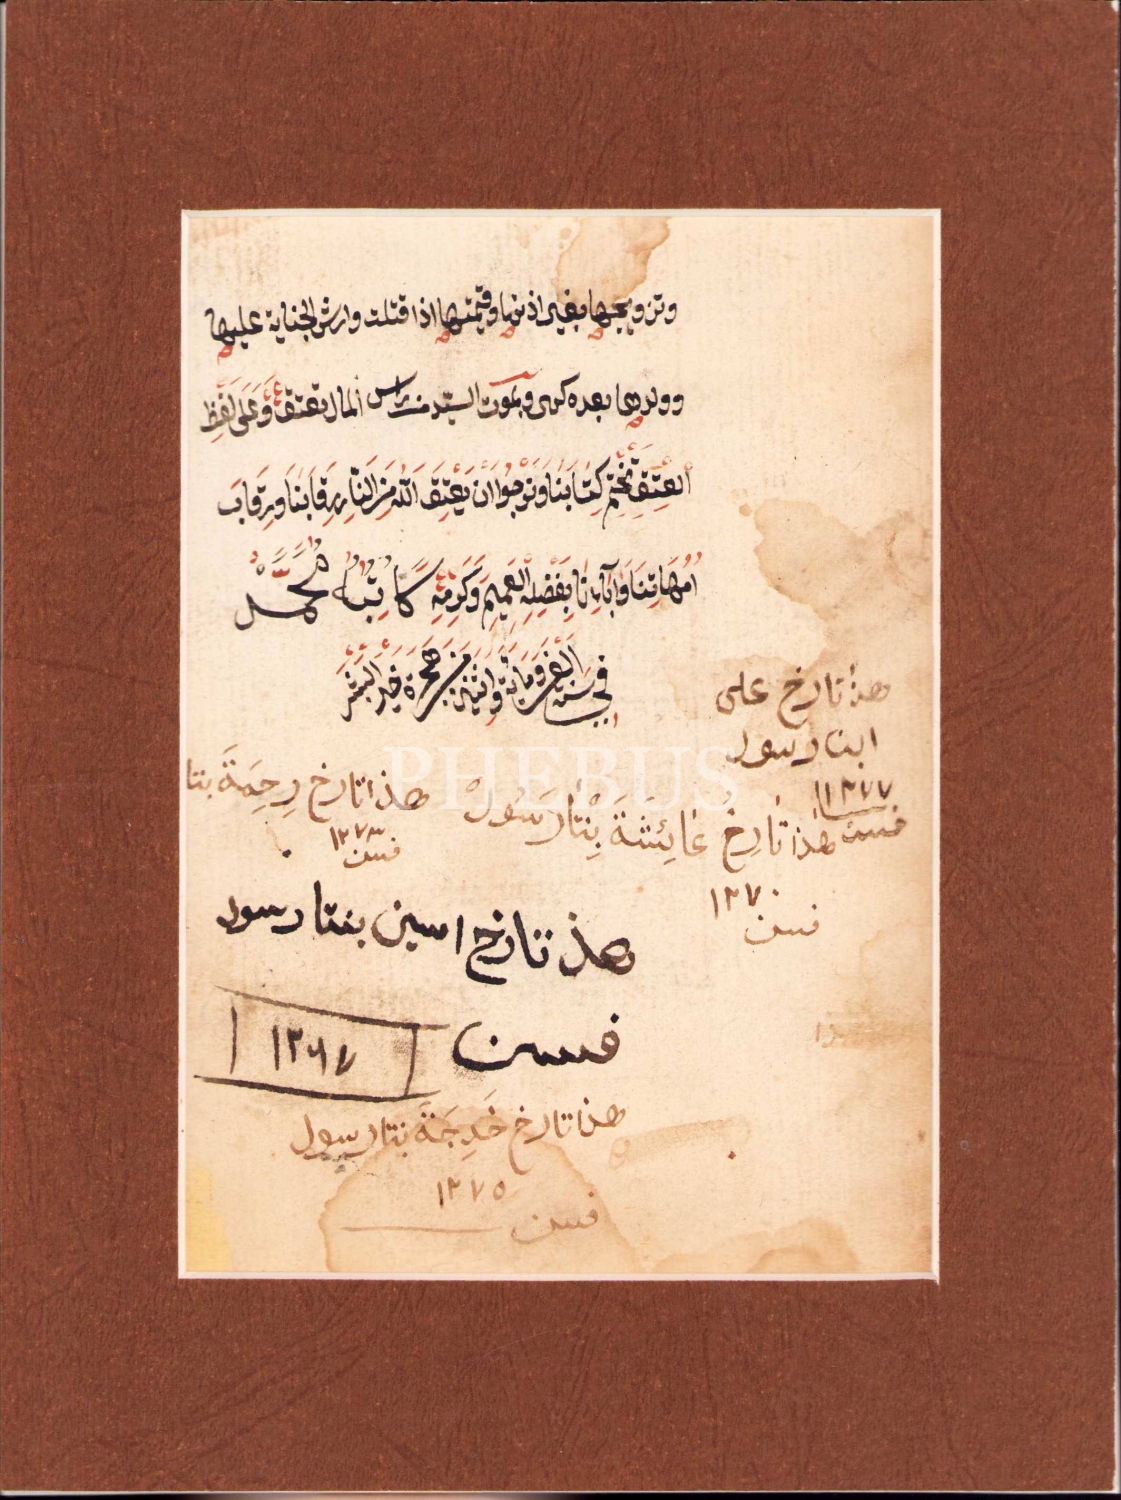 وتزويجها بغير اذنها وقيمتها اذا قتلت وارش الجناية عليها
وولدها بعده كهى وبموت السيد من راس المال تعتق وَعَلى لَفظ
العِتِقِ نَختِم كِتَابَنَا وَنَرجُوا ان يَعتِقَ اَلله مِنَ النّارِ رِقَابَنَا وَرِقَابَ
اُمّهَاتِنَا وَابآءِنَا بِفَضلِهِ العَمِيمِ وَكَرَمِهِ كَاتِبُهُ مُحَمَّد
فِي سَنَةِ اَلفٍ وَمِائَةٍ وَاثنَينِ مِن هِجرَةِ خَيرِ البَشَرِ
هذا تارخ على
ابنا رسول
١٣٧٧
فسنن
هذا تارخ رحِمَة بنتا
فسنن ١٢٧٣
هذا تَارِخُ عَائِشَةَ بِنتَا رَسُول
فسنن ١٢٧٠
هذ تارخ اسين بنتا رسول
فسنن ١٢٦٧
هذا تارخ خَدِجَةً بنتا رسول
١٢٧٥
فسنن
PHEBUS